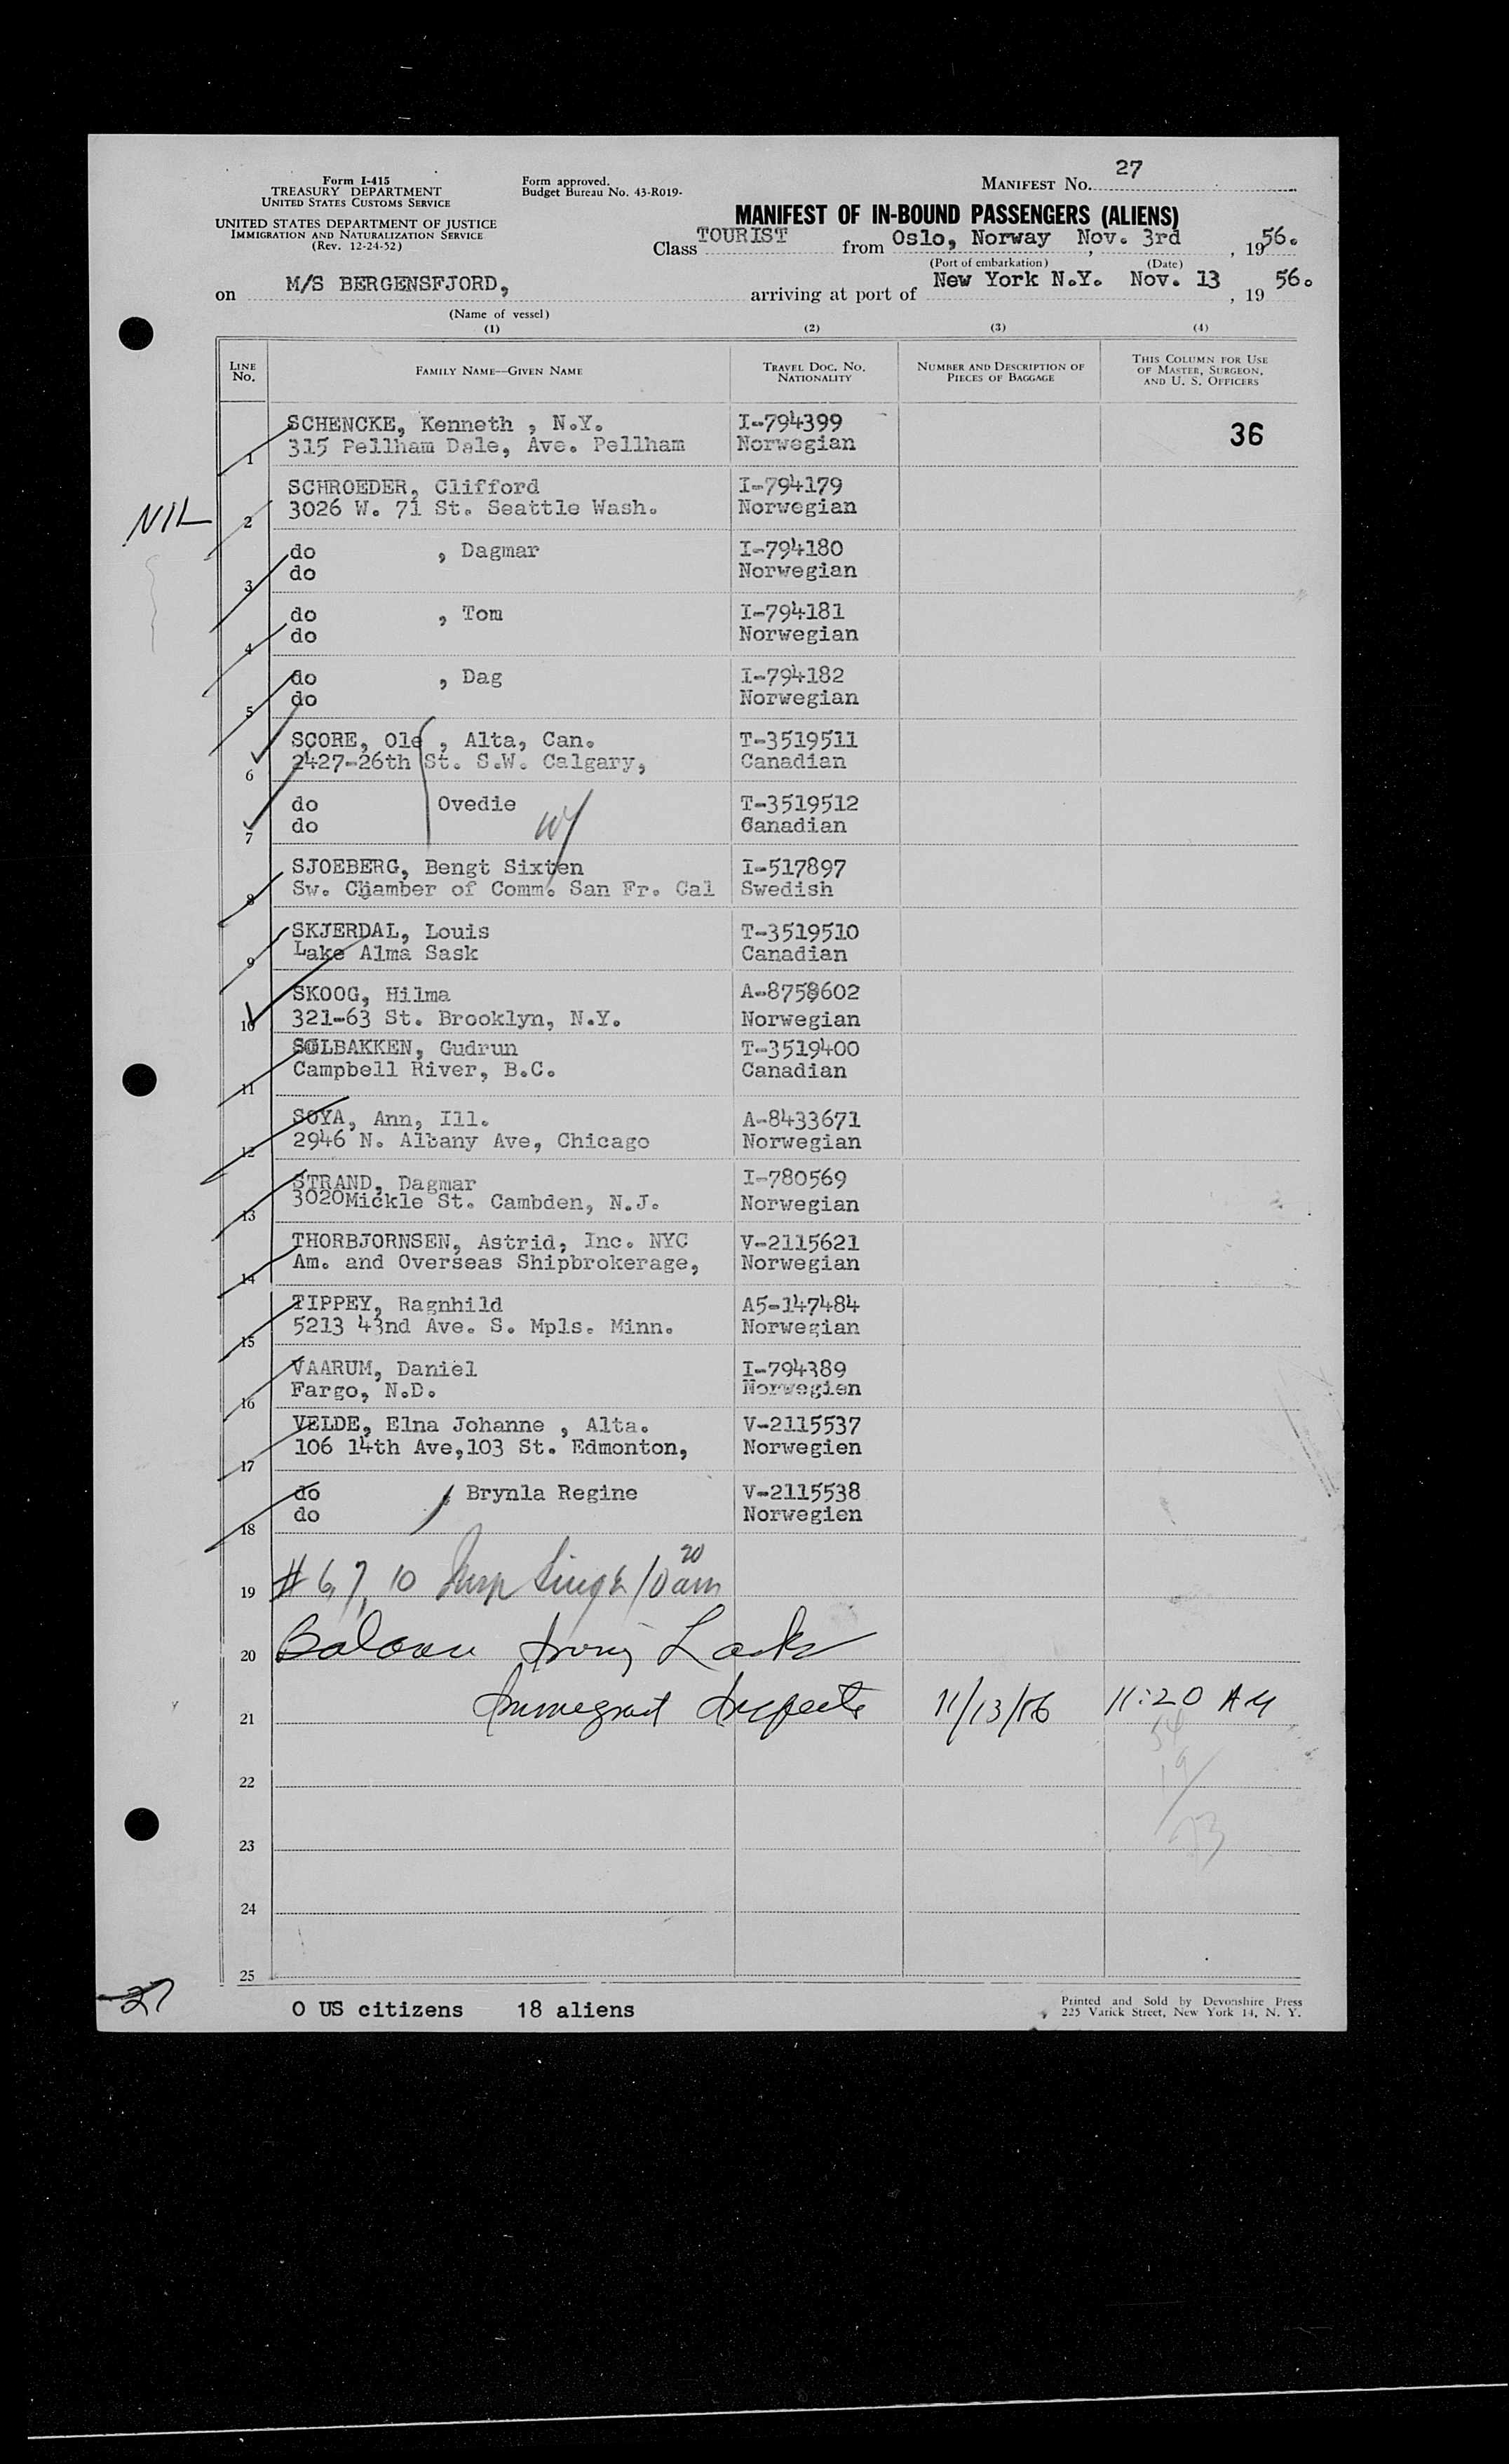 27
Form I-415
TREASURY DEPARTMENT
UNITED STATES CUSTOMS SERVICE
Form approved.
Budget Bureau No. 43-R019-
MANIFEST No.
UNITED STATES DEPARTMENT OF JUSTICE
IMMIGRATION AND NATURALIZATION SERVICE
(Rev. 12-24-52)
MANIFEST OF IN-BOUND PASSENGERS (ALIENS)
Class TOURIST from Oslo, Norway Nov. 3rd , 1956.
(Port of embarkation) (Date)
on M/S BERGENSFJORD, arriving at port of New York N.Y. Nov. 13 , 19 56.
(Name of vessel)
(1) (2) (3) (4)
LINE No. FAMILY NAME—GIVEN NAME TRAVEL DOC. NO. NATIONALITY NUMBER AND DESCRIPTION OF PIECES OF BAGGAGE THIS COLUMN FOR USE OF MASTER, SURGEON, AND U. S. OFFICERS
SCHENCKE, Kenneth , N.Y. I-794399 36
1 315 Pellham Dale, Ave. Pellham Norwegian
SCHROEDER, Clifford I-794179
NIL 2 3026 W. 71 St. Seattle Wash. Norwegian
do , Dagmar I-794180
3 do Norwegian
do , Tom I-794181
4 do Norwegian
do , Dag I-794182
5 do Norwegian
SCORE, Ole , Alta, Can. T-3519511
6 2427-26th St. S.W. Calgary, Canadian
do Ovedie T-3519512
7 do Canadian
SJOEBERG, Bengt Sixten I-517897
8 Sw. Chamber of Comm. San Fr. Cal Swedish
SKJERDAL, Louis T-3519510
9 Lake Alma Sask Canadian
SKOOG, Hilma A-8758602
10 321-63 St. Brooklyn, N.Y. Norwegian
SØLBAKKEN, Gudrun T-3519400
11 Campbell River, B.C. Canadian
SOYA, Ann, Ill. A-8433671
12 2946 N. Albany Ave, Chicago Norwegian
STRAND, Dagmar I-780569
13 3020Mickle St. Cambden, N.J. Norwegian
THORBJORNSEN, Astrid, Inc. NYC V-2115621
14 Am. and Overseas Shipbrokerage, Norwegian
TIPPEY, Ragnhild A5-147484
15 5213 43nd Ave. S. Mpls. Minn. Norwegian
VAARUM, Daniel I-794389
16 Fargo, N.D. Norwegien
VELDE, Elna Johanne , Alta. V-2115537
17 106 14th Ave,103 St. Edmonton, Norwegien
do , Brynla Regine V-2115538
18 do Norwegien
19 # 6, 7, 10 10 20 am
20
21 11/13/56 11:20 AM
22
23
24
25
27
0 US citizens 18 aliens
Printed and Sold by Devonshire Press
225 Varick Street, New York 14, N. Y.